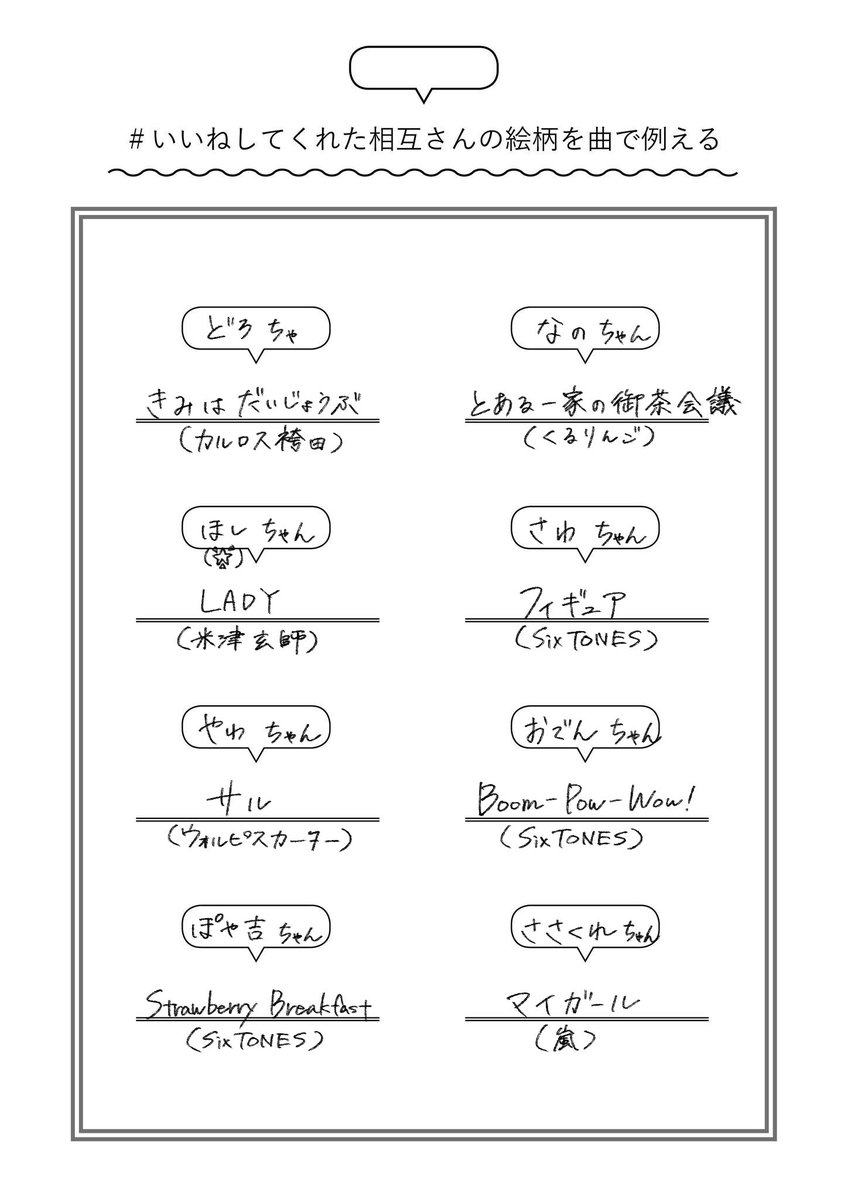 #いいねしてくれた相互さんの絵柄を曲で例える
どろちゃ
きみはだいじょうぶ
(カルロス袴田)
なのちゃん
とある一家の御茶会議
(くるりんご)
ほしちゃん
(🌟)
LADY
(米津玄師)
さわちゃん
フィギュア
(SixTONES)
やわちゃん
サル
(ウォルピスカーター)
おでんちゃん
Boom-Pow-Wow!
(SixTONES)
ぽや吉ちゃん
Strawberry Breakfast
(SixTONES)
ささくれちゃん
マイガール
(嵐)